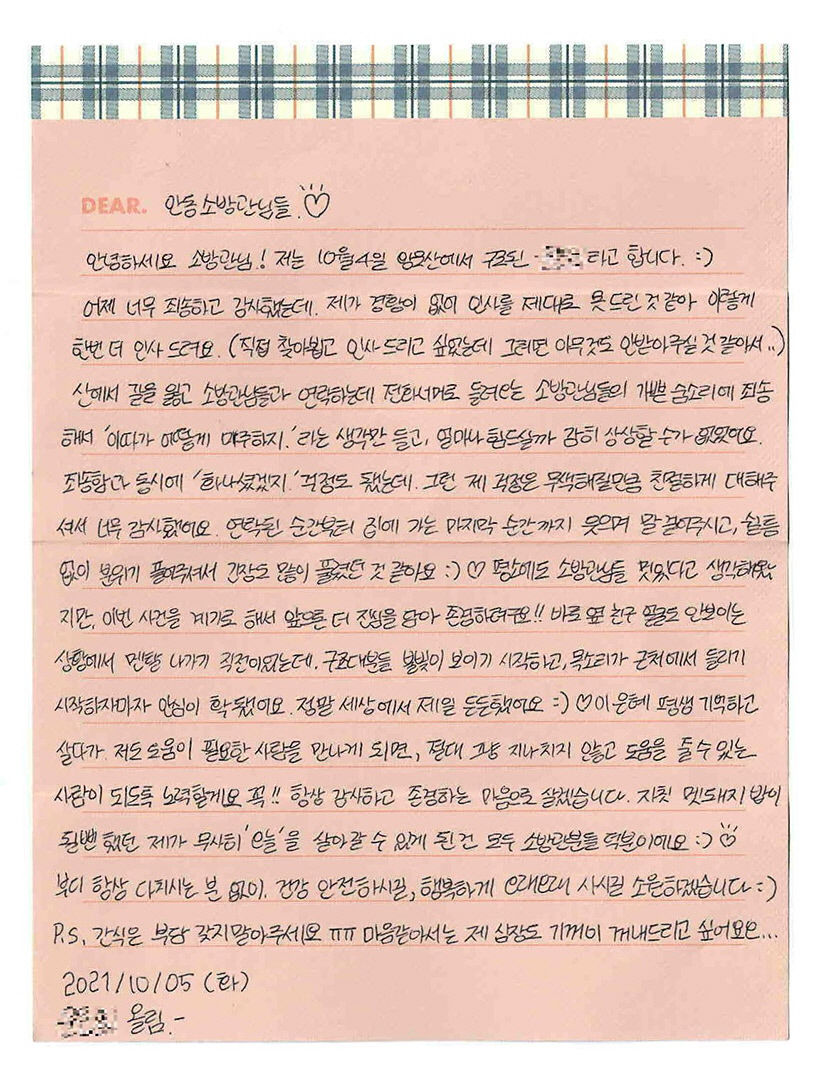 DEAR. 안동소방관님들 ♡
안녕하세요 소방관님! 저는 10월4일 와룡산에서 구조된 라고 합니다. :)
어제 너무 죄송하고 감사했는데. 제가 경황이 없어 인사를 제대로 못드린 것 같아 이렇게
한번 더 인사드려요. (직접 찾아뵙고 인사드리고 싶었는데 그러면 아무것도 안받아주실 것 같아서..)
산에서 길을 잃고 소방관님들과 연락하는데 전화너머로 들려오는 소방관님들의 가쁜 숨소리에 죄송
해서 '이따가 어떻게 마주하지.' 라는 생각만 들고, 얼마나 힘드실까 감히 상상할 수가 없었어요.
죄송함과 동시에 '화나셨겠지.' 걱정도 됐는데. 그런 제 걱정은 무색해질만큼 친절하게 대해주
셔서 너무 감사했어요. 연락된 순간부터 집에 가는 마지막 순간까지 웃으며 말 걸어주시고, 쉴틈
없이 분위기 풀어주셔서 긴장도 많이 풀렸던 것 같아요 :) ♡ 평소에도 소방관님들 멋있다고 생각해왔
지만, 이번 사건을 계기로 해서 앞으론 더 진심을 담아 존경하려구요!! 바로 옆 친구 얼굴도 안보이는
상황에서 멘탈 나가기 직전이었는데. 구조대분들 불빛이 보이기 시작하고, 목소리가 근처에서 들리기
시작하자마자 안심이 확 됐어요. 정말 세상에서 제일 든든했어요 :) ♡ 이 은혜 평생 기억하고
살다가 저도 도움이 필요한 사람을 만나게 되면, 절대 그냥 지나치지 않고 도움을 줄 수 있는
사람이 되도록 노력할게요 꼭!! 항상 감사하고 존경하는 마음으로 살겠습니다. 자칫 멧돼지 밥이
될뻔 했던 제가 무사히 '오늘'을 살아갈 수 있게 된 건 모두 소방관분들 덕분이에요 :) ♡
부디 항상 다치시는 분 없이. 건강 안전하시길, 행복하게 오래오래 사시길 소원하겠습니다 :)
P.S. 간식은 부담 갖지말아주세요 ㅠㅠ 마음같아서는 제 심장도 기꺼이 꺼내드리고 싶어요오...
2021/10/05 (화)
올림.-